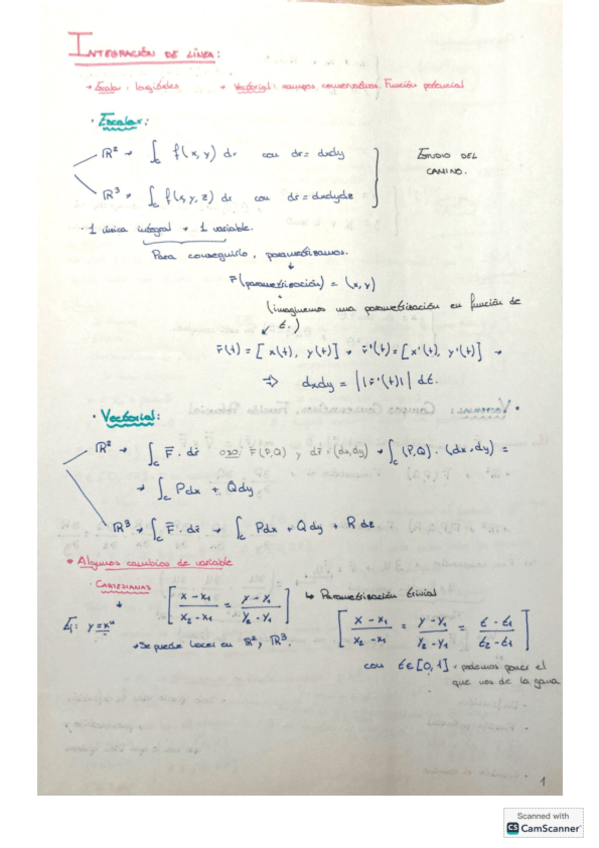 INTEGRACIÓN DE LÍNEA:
→ Escalar: longitudes → Vectorial: campos conservativos. Función potencial
· Escalar:
ℝ² → ∫c f(x, y) dr con dr = dxdy
ESTUDIO DEL CAMINO.
ℝ³ → ∫c f(x, y, z) dr con dr = dxdydz
· 1 única integral → 1 variable.
Para conseguirlo, parametrizamos.
↓
r̄ (parametrización) = (x, y)
(imaginemos una parametrización en función de
t.)
r̄(t) = [x(t), y(t)] → r̄'(t) = [x'(t), y'(t)] →
⇒ dxdy = ||r̄'(t)|| dt.
· Vectorial:
ℝ² → ∫c F̄ · dr̄ F̄(P,Q) y dr̄ = (dx,dy) → ∫c (P,Q) · (dx,dy) =
→ ∫c Pdx + Qdy
ℝ³ → ∫c F̄ · dr̄ → ∫c Pdx + Qdy + Rdz
• Algunos cambios de variable
· CARTESIANAS [x - x₁ / x₂ - x₁ = y - y₁ / y₂ - y₁] ↳ Parametrización trivial
Ej: y = x⁴ [x - x₁ / x₂ - x₁ = y - y₁ / y₂ - y₁ = t - t₁ / t₂ - t₁]
→ Se puede hacer en ℝ², ℝ³.
con t ∈ [0, 1] → podemos poner el
que nos de la gana
1
Scanned with
CS CamScanner